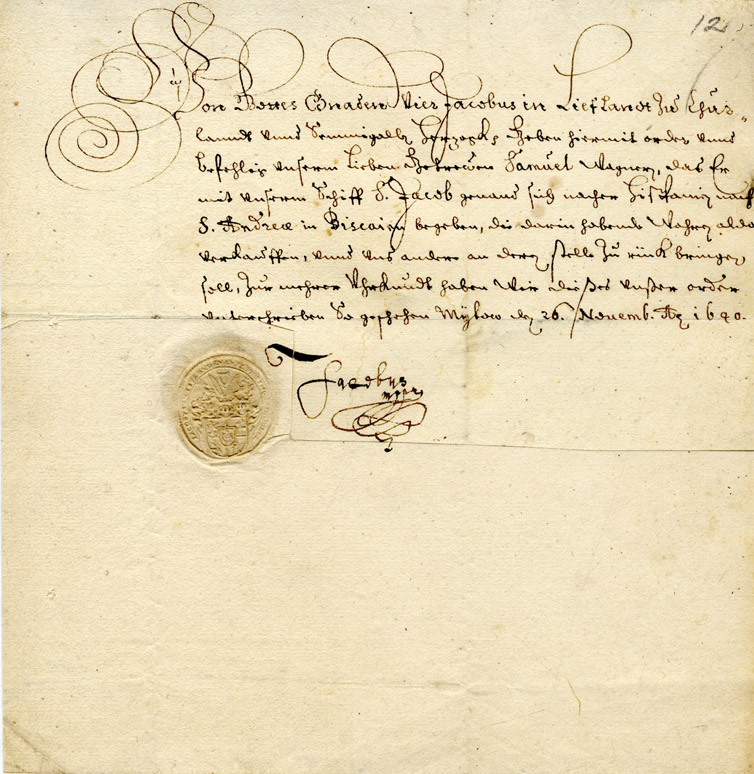 12
Von Gottes Gnaden Wier Jacobus in Liefflandt Zu Chur-
landt vnnd Semmigalln Hertzogk, Geben hiermit order vnnd
befehlig vnserm lieben Getrewen Samuel Wagnern, das Er
mit vnserm Schiff S. Jacob genant sich nacher Hispanien nach
S. Andreæ in Biscaien begeben, die darin habende Wahren aldo
verkauffen, vnnd vns andere an deren stelle Zu rück bringen
soll, Zur mehrer Uhrkundt haben Wir dießes vnßer order
vnterschrieben So geschehen Mytow den 26. Novemb. Ao 1640.
Jacobus
mppr